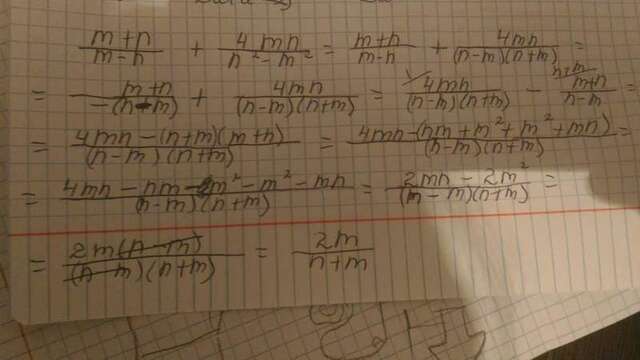 (m+n)/(m-n) + (4mn)/(n²-m²) = (m+n)/(m-n) + (4mn)/((n-m)(n+m)) =
= (m+n)/(-(n-m)) + (4mn)/((n-m)(n+m)) = (4mn)/((n-m)(n+m)) - (m+n)/(n-m) =
= (4mn-(n+m)(m+n))/((n-m)(n+m)) = (4mn-(nm+m²+m²+mn))/((n-m)(n+m)) =
= (4mn-nm-m²-m²-mn)/((n-m)(n+m)) = (2mn-2m²)/((n-m)(n+m)) =
= (2m(n-m))/((n-m)(n+m)) = (2m)/(n+m)